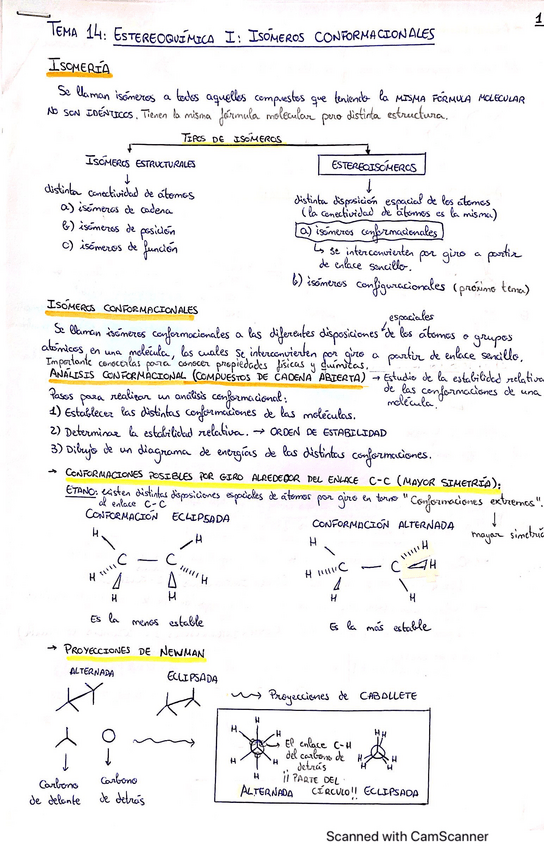 1
TEMA 14: ESTEREOQUÍMICA I: ISÓMEROS CONFORMACIONALES
ISOMERÍA
Se llaman isómeros a todos aquellos compuestos que teniendo la MISMA FÓRMULA MOLECULAR
NO SON IDÉNTICOS. Tienen la misma fórmula molecular pero distinta estructura.
TIPOS DE ISÓMEROS
ISÓMEROS ESTRUCTURALES
distinta conectividad de átomos
a) isómeros de cadena
b) isómeros de posición
c) isómeros de función
ESTEREOISÓMEROS
distinta disposición espacial de los átomos
(la conectividad de átomos es la misma)
a) isómeros conformacionales
↳ se interconvierten por giro a partir
de enlace sencillo.
b) isómeros configuracionales (próximo tema)
ISÓMEROS CONFORMACIONALES
espaciales
Se llaman isómeros conformacionales a las diferentes disposiciones de los átomos o grupos
atómicos en una molécula, las cuales se interconvierten por giro a partir de enlace sencillo.
Importante conocerlas para conocer propiedades físicas y químicas.
ANÁLISIS CONFORMACIONAL (COMPUESTOS DE CADENA ABIERTA) → Estudio de la estabilidad relativa
de las conformaciones de una
molécula.
Pasos para realizar un análisis conformacional:
1) Establecer las distintas conformaciones de las moléculas.
2) Determinar la estabilidad relativa. → ORDEN DE ESTABILIDAD
3) Dibujo de un diagrama de energías de las distintas conformaciones.
→ CONFORMACIONES POSIBLES POR GIRO ALREDEDOR DEL ENLACE C-C (MAYOR SIMETRÍA):
ETANO: existen distintas disposiciones espaciales de átomos por giro en torno "Conformaciones extremos".
al enlace C-C
mayor simetría
CONFORMACIÓN ECLIPSADA
H H
C — C
H H
H H
Es la menos estable
CONFORMACIÓN ALTERNADA
H H
C — C H
H
H H
Es la más estable
→ PROYECCIONES DE NEWMAN
ALTERNADA
ECLIPSADA
Proyecciones de CABALLETE
Carbono
de delante
Carbono
de detrás
H
H H
H H
H
El enlace C-H
del carbono de
detrás
¡¡ PARTE DEL
CÍRCULO!!
ALTERNADA
HH
H H
H H
ECLIPSADA
Scanned with CamScanner